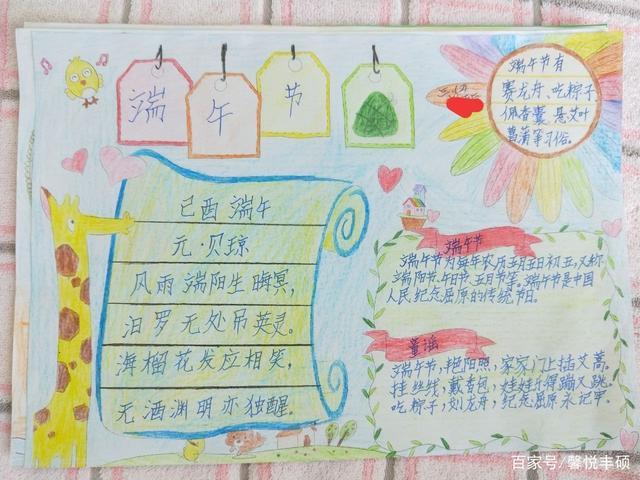 端
午
节
端午节有
赛龙舟、吃粽子、
佩香囊、悬艾叶
菖蒲等习俗。
已酉 端午
元·贝琼
风雨端阳生晦冥，
汨罗无处吊英灵。
海榴花发应相笑，
无酒渊明亦独醒。
端午节
端午节为每年农历五月五日初五，又称
端阳节、午日节、五月节等。端午节是中国
人民纪念屈原的传统节日。
童谣
端午节，艳阳照，家家门上插艾蒿。
挂丝线，戴香包，娃娃乐得蹦又跳。
吃粽子，划龙舟，纪念屈原永记牢。
百家号/馨悦丰硕